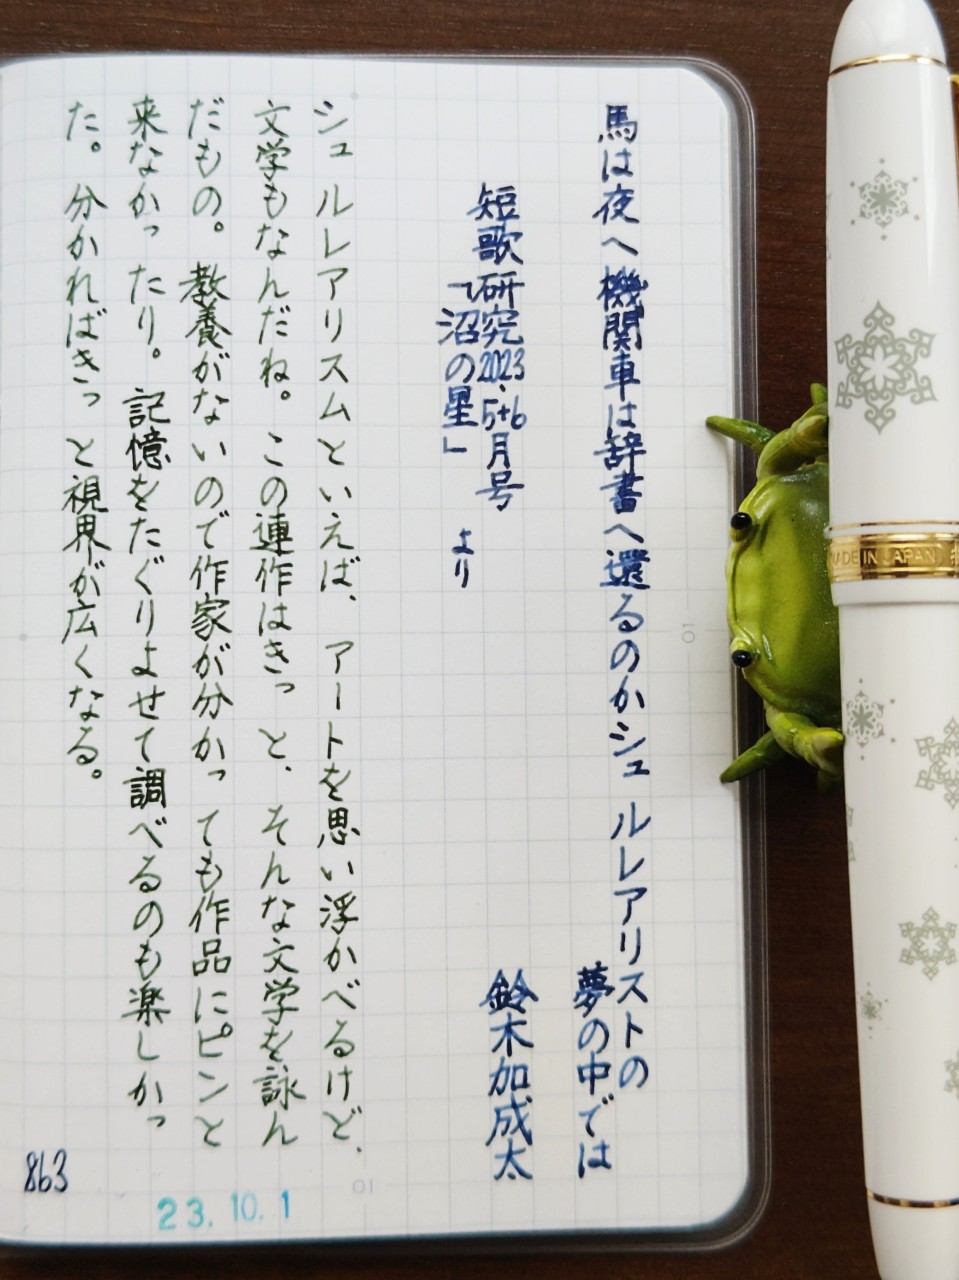 馬は夜へ機関車は辞書へ還るのかシュルレアリストの
夢の中では
短歌研究2023.5+6月号
「沼の星」より
鈴木加成太
シュルレアリスムといえば、アートを思い浮かべるけど、
文学もなんだね。この連作はきっと、そんな文学を詠ん
だもの。教養がないので作家が分かっても作品にピンと
来なかったり。記憶をたぐりよせて調べるのも楽しかっ
た。分かればきっと視界が広くなる。
863
23.10.1
10
10
MADE IN JAPAN